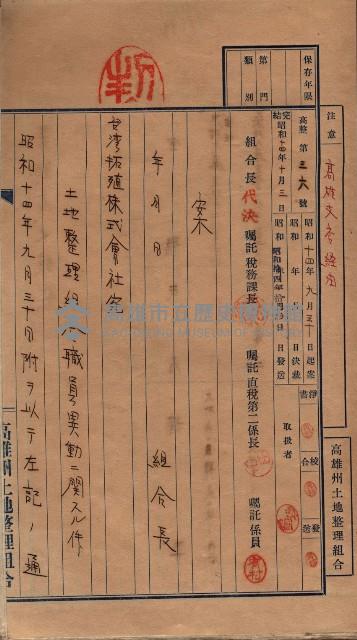 注意
高雄支店経由
保存年限
第 門
類別
高整第三六號
完結昭和十四年十月三日
昭和十四年九月三十日起案
昭和 年 月 日決裁
昭和拾四年 月 日發送
淨書
校合
發送
取扱者
組合長代決
囑託稅務課長
囑託直稅第二係長
囑託係員
案
年 月 日
組合長
台湾拓殖株式會社宛
土地整理組合職員異動ニ関スル件
昭和十四年九月三十日附ヲ以テ左記ノ通
高雄州土地整理組合
高雄州土地整理組合
高雄市立歷史博物館
KAOHSIUNG MUSEUM OF HISTORY